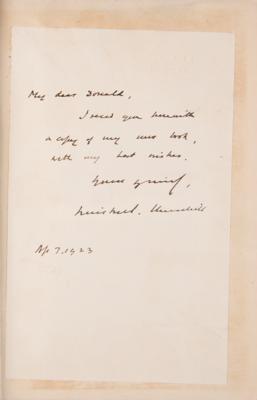 My dear Donald,
I send you herewith
a copy of my new book,
with my best wishes.
Yours
Winston S. Churchill
Ap 7. 1923